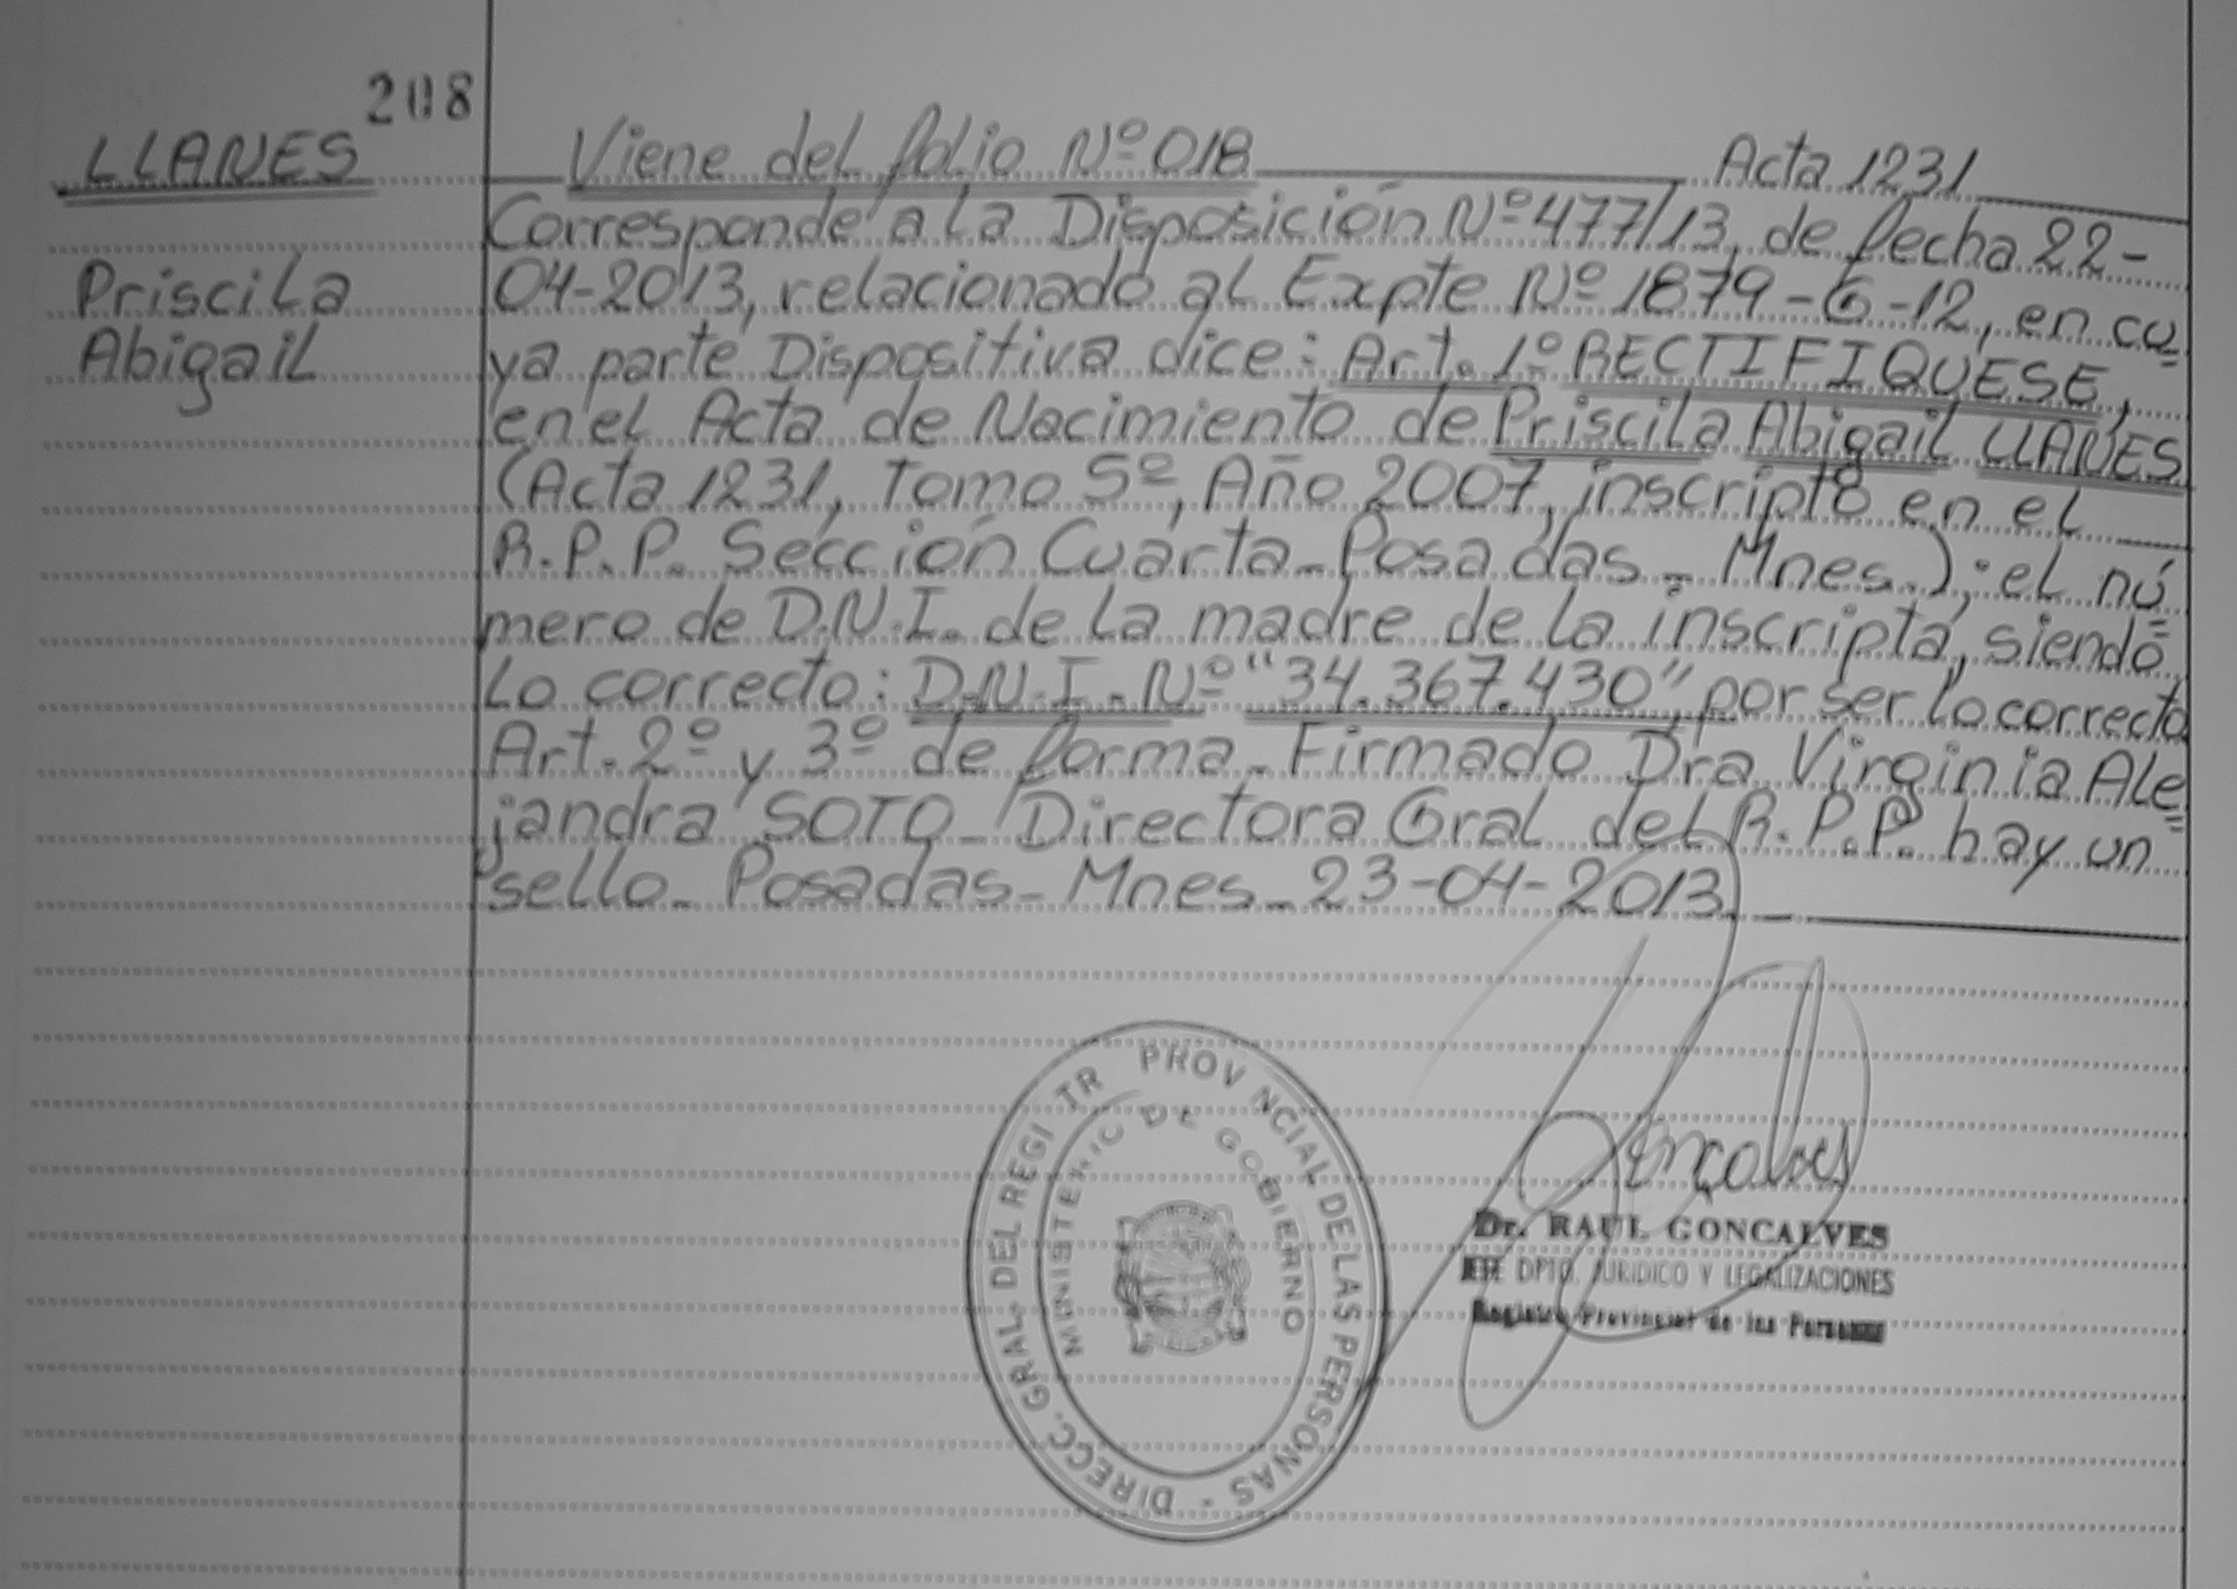 208
LLANES
Priscila
Abigail
Viene del folio Nº 018 Acta 1231
Corresponde a la Disposición Nº 477/13, de fecha 22-
04-2013, relacionado al Expte Nº 1879-G-12, en cu=
ya parte Dispositiva dice: Art. 1º RECTIFIQUESE,
en el Acta de Nacimiento de Priscila Abigail LLANES
(Acta 1231, Tomo 5º, Año 2007, inscripto en el
R.P.P. Sección Cuarta-Posadas-Mnes.); el nú=
mero de D.N.I. de la madre de la inscripta, siendo
lo correcto: D.N.I. Nº "34.367.430", por ser lo correcto
Art. 2º y 3º de forma-Firmado Dra Virginia Ale=
jandra SOTO-Directora Gral del R.P.P. hay un
sello-Posadas-Mnes-23-04-2013
DIRECC. GRAL. DEL REGI TR PROV NCIAL DE LAS PERSONAS -
MINISTERIO DE GOBIERNO
Goncalves
Dr. RAUL GONCALVES
JEFE DPTO. JURIDICO Y LEGALIZACIONES
Registro Provincial de las Personas